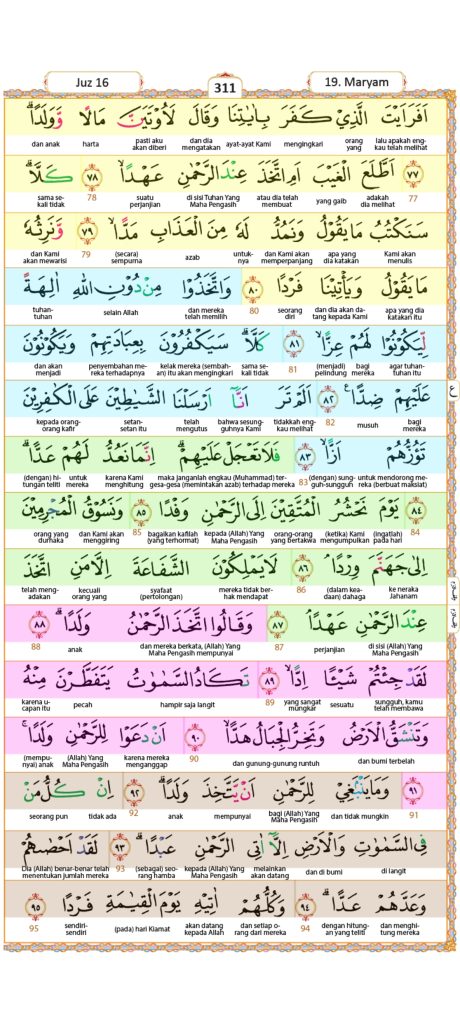 Juz 16
311
19. Maryam
اَفَرَاَيْتَ الَّذِيْ كَفَرَ بِاٰيٰتِنَا وَقَالَ لَاُوْتَيَنَّ مَالًا وَّوَلَدًاۗ
lalu apakah engkau telah melihat orang yang mengingkari ayat-ayat Kami dan dia mengatakan pasti aku akan diberi harta dan anak
٧٧ اَطَّلَعَ الْغَيْبَ اَمِ اتَّخَذَ عِنْدَ الرَّحْمٰنِ عَهْدًاۙ ٧٨ كَلَّاۗ
77 adakah dia melihat yang gaib atau dia telah membuat di sisi Tuhan Yang Maha Pengasih suatu perjanjian 78 sama sekali tidak
سَنَكْتُبُ مَا يَقُوْلُ وَنَمُدُّ لَهٗ مِنَ الْعَذَابِ مَدًّاۙ ٧٩ وَّنَرِثُهٗ
Kami akan menulis apa yang dia katakan dan Kami akan memperpanjang untuknya azab (secara) sempurna 79 dan Kami akan mewarisi
مَا يَقُوْلُ وَيَأْتِيْنَا فَرْدًا ٨٠ وَاتَّخَذُوْا مِنْ دُوْنِ اللّٰهِ اٰلِهَةً
apa yang dia katakan itu dan dia akan datang kepada Kami seorang diri 80 dan mereka telah memilih selain Allah tuhan-tuhan
لِّيَكُوْنُوْا لَهُمْ عِزًّاۙ ٨١ كَلَّاۗ سَيَكْفُرُوْنَ بِعِبَادَتِهِمْ وَيَكُوْنُوْنَ
agar tuhan-tuhan itu bagi mereka (menjadi) pelindung 81 sama sekali tidak kelak mereka (sembahan) itu akan mengingkari penyembahan mereka terhadapnya dan akan menjadi
عَلَيْهِمْ ضِدًّاࣖ ٨٢ اَلَمْ تَرَ اَنَّآ اَرْسَلْنَا الشَّيٰطِيْنَ عَلَى الْكٰفِرِيْنَ
bagi mereka musuh 82 tidakkah engkau melihat bahwa sesungguhnya Kami telah mengutus setan-setan itu kepada orang-orang kafir
تَؤُزُّهُمْ اَزًّاۙ ٨٣ فَلَا تَعْجَلْ عَلَيْهِمْۗ اِنَّمَا نَعُدُّ لَهُمْ عَدًّاۗ
untuk mendorong mereka (berbuat maksiat) sungguh-sungguh 83 maka janganlah engkau (Muhammad) tergesa-gesa (memintakan azab) terhadap mereka karena Kami menghitung untuk mereka (dengan) hitungan teliti
٨٤ يَوْمَ نَحْشُرُ الْمُتَّقِيْنَ اِلَى الرَّحْمٰنِ وَفْدًا ٨٥ وَنَسُوْقُ الْمُجْرِمِيْنَ
84 (ingatlah) pada hari (ketika) Kami mengumpulkan orang-orang yang bertakwa kepada (Allah) Yang Maha Pengasih bagaikan kafilah (yang terhormat) 85 dan Kami akan menggiring orang yang durhaka
اِلٰى جَهَنَّمَ وِرْدًاۘ ٨٦ لَا يَمْلِكُوْنَ الشَّفَاعَةَ اِلَّا مَنِ اتَّخَذَ
ke neraka Jahanam (dalam keadaan) dahaga 86 mereka tidak berhak mendapat syafaat (pertolongan) kecuali orang yang telah mengadakan
عِنْدَ الرَّحْمٰنِ عَهْدًاۘ ٨٧ وَقَالُوا اتَّخَذَ الرَّحْمٰنُ وَلَدًاۗ ٨٨
di sisi (Allah) Yang Maha Pengasih perjanjian 87 dan mereka berkata, (Allah) Yang Maha Pengasih mempunyai anak 88
لَقَدْ جِئْتُمْ شَيْـًٔا اِدًّاۙ ٨٩ تَكَادُ السَّمٰوٰتُ يَتَفَطَّرْنَ مِنْهُ
sungguh, kamu telah membawa sesuatu yang sangat mungkar 89 hampir saja langit pecah karena ucapan itu
وَتَنْشَقُّ الْاَرْضُ وَتَخِرُّ الْجِبَالُ هَدًّاۙ ٩٠ اَنْ دَعَوْا لِلرَّحْمٰنِ وَلَدًاۚ
dan bumi terbelah dan gunung-gunung runtuh 90 karena mereka menganggap (Allah) Yang Maha Pengasih (mempunyai) anak
٩١ وَمَا يَنْۢبَغِيْ لِلرَّحْمٰنِ اَنْ يَّتَّخِذَ وَلَدًاۗ ٩٢ اِنْ كُلُّ مَنْ
91 dan tidak mungkin bagi (Allah) Yang Maha Pengasih mempunyai anak 92 tidak ada seorang pun
فِى السَّمٰوٰتِ وَالْاَرْضِ اِلَّآ اٰتِى الرَّحْمٰنِ عَبْدًاۗ ٩٣ لَقَدْ اَحْصٰىهُمْ
di langit dan di bumi melainkan akan datang kepada (Allah) Yang Maha Pengasih (sebagai) seorang hamba 93 Dia (Allah) benar-benar telah menentukan jumlah mereka
وَعَدَّهُمْ عَدًّاۗ ٩٤ وَكُلُّهُمْ اٰتِيْهِ يَوْمَ الْقِيٰمَةِ فَرْدًا ٩٥
dan menghitung mereka dengan hitungan yang teliti 94 dan setiap orang dari mereka akan datang kepada Allah (pada) hari Kiamat sendiri-sendiri 95
ع